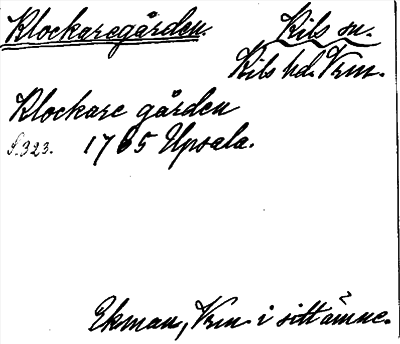 Klockaregården. Kils sn.
Kils hd. Vrm.
Klockare gården
S. 323. 1765 Upsala.
Ekman, Vrm. i sitt ämne.